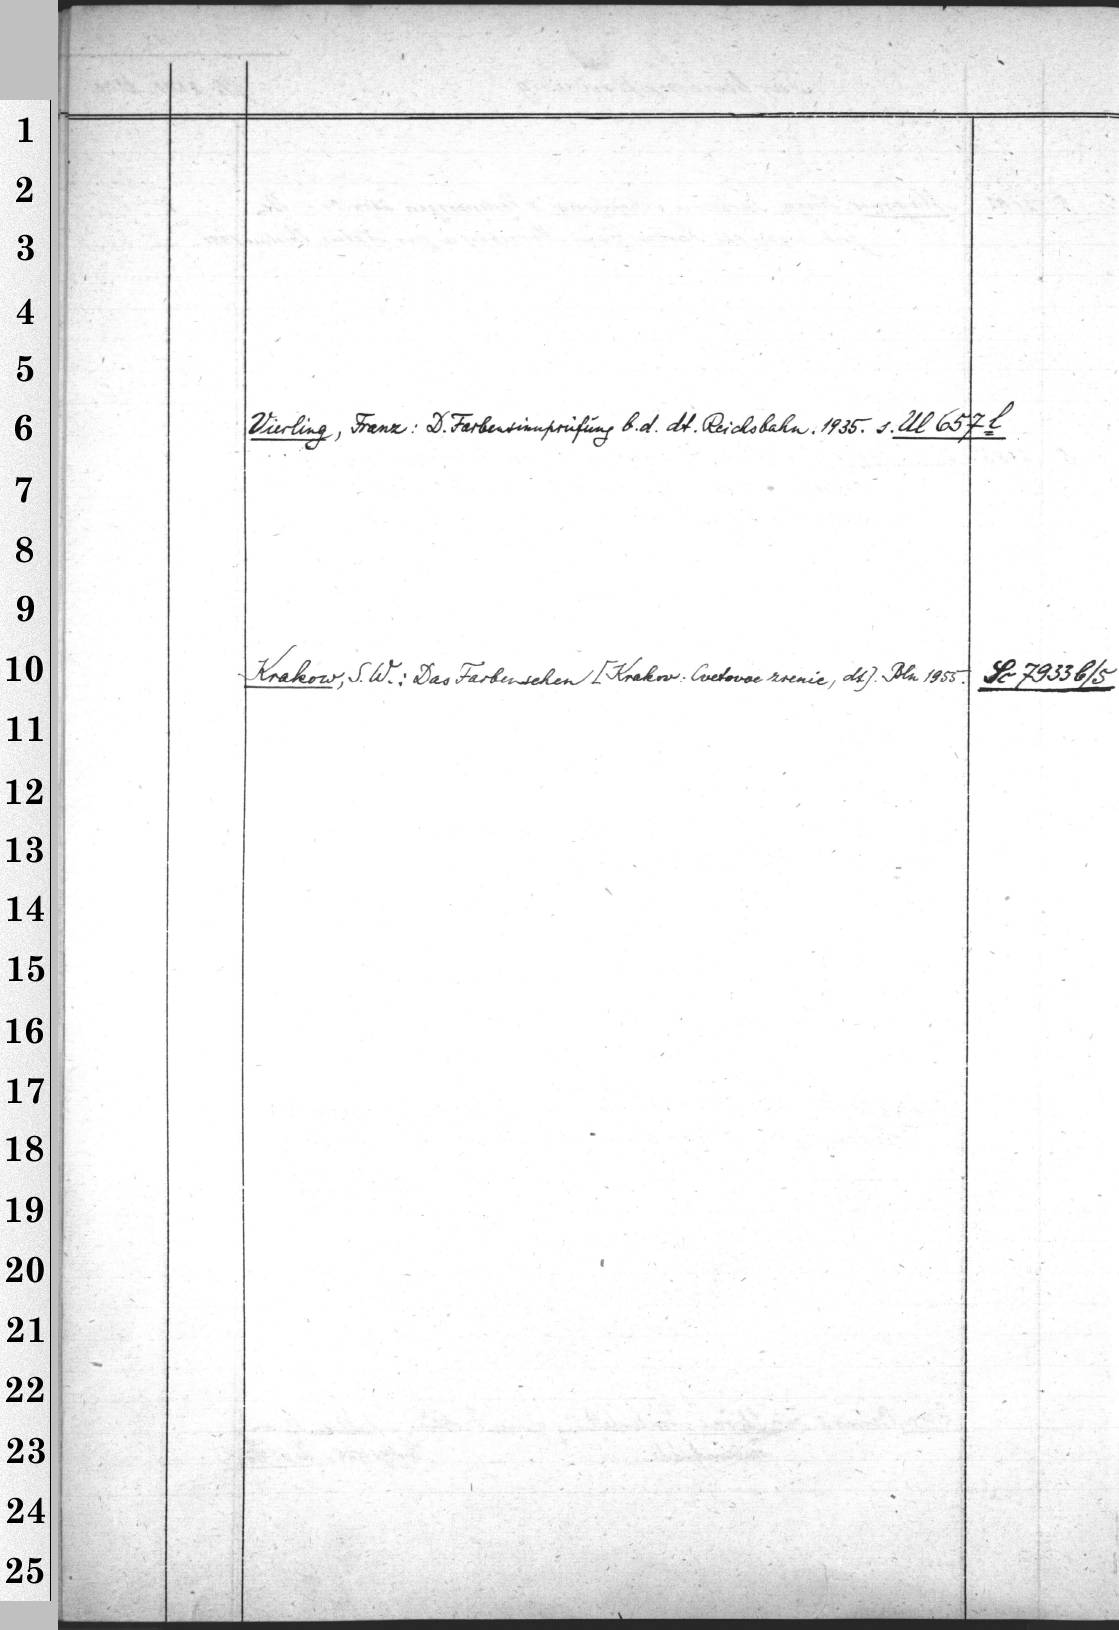 1
2
3
4
5
6
Vierling, Franz: D. Farbensinnprüfung b. d. dt. Reichsbahn. 1935. s. Ul 657 l
7
8
9
10
Krakow, S. W.: Das Farbensehen [Krakov: Cvetovoe zrenie, dt]. Bln 1955. Sc 7933 b/5
11
12
13
14
15
16
17
18
19
20
21
22
23
24
25